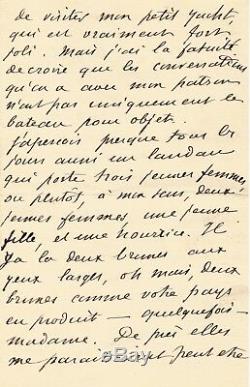 de visiter mon petit yacht,
qui est vraiment fort
joli. Mais j'ai la fatuité
de croire que les conversations
qu'on a avec mon patron
n'ont pas uniquement le
bateau pour objet.
J'aperçois presque tous les
jours aussi un landau
qui porte trois jeunes femmes
ou plutôt, à mon sens, deux
jeunes femmes, une jeune
fille, et une nourrice. Il
y a là deux brunes aux
yeux larges, oh mais, deux
brunes comme votre pays
en produit - quelquefois -
madame. De près elles
me paraît et peut être
ebay